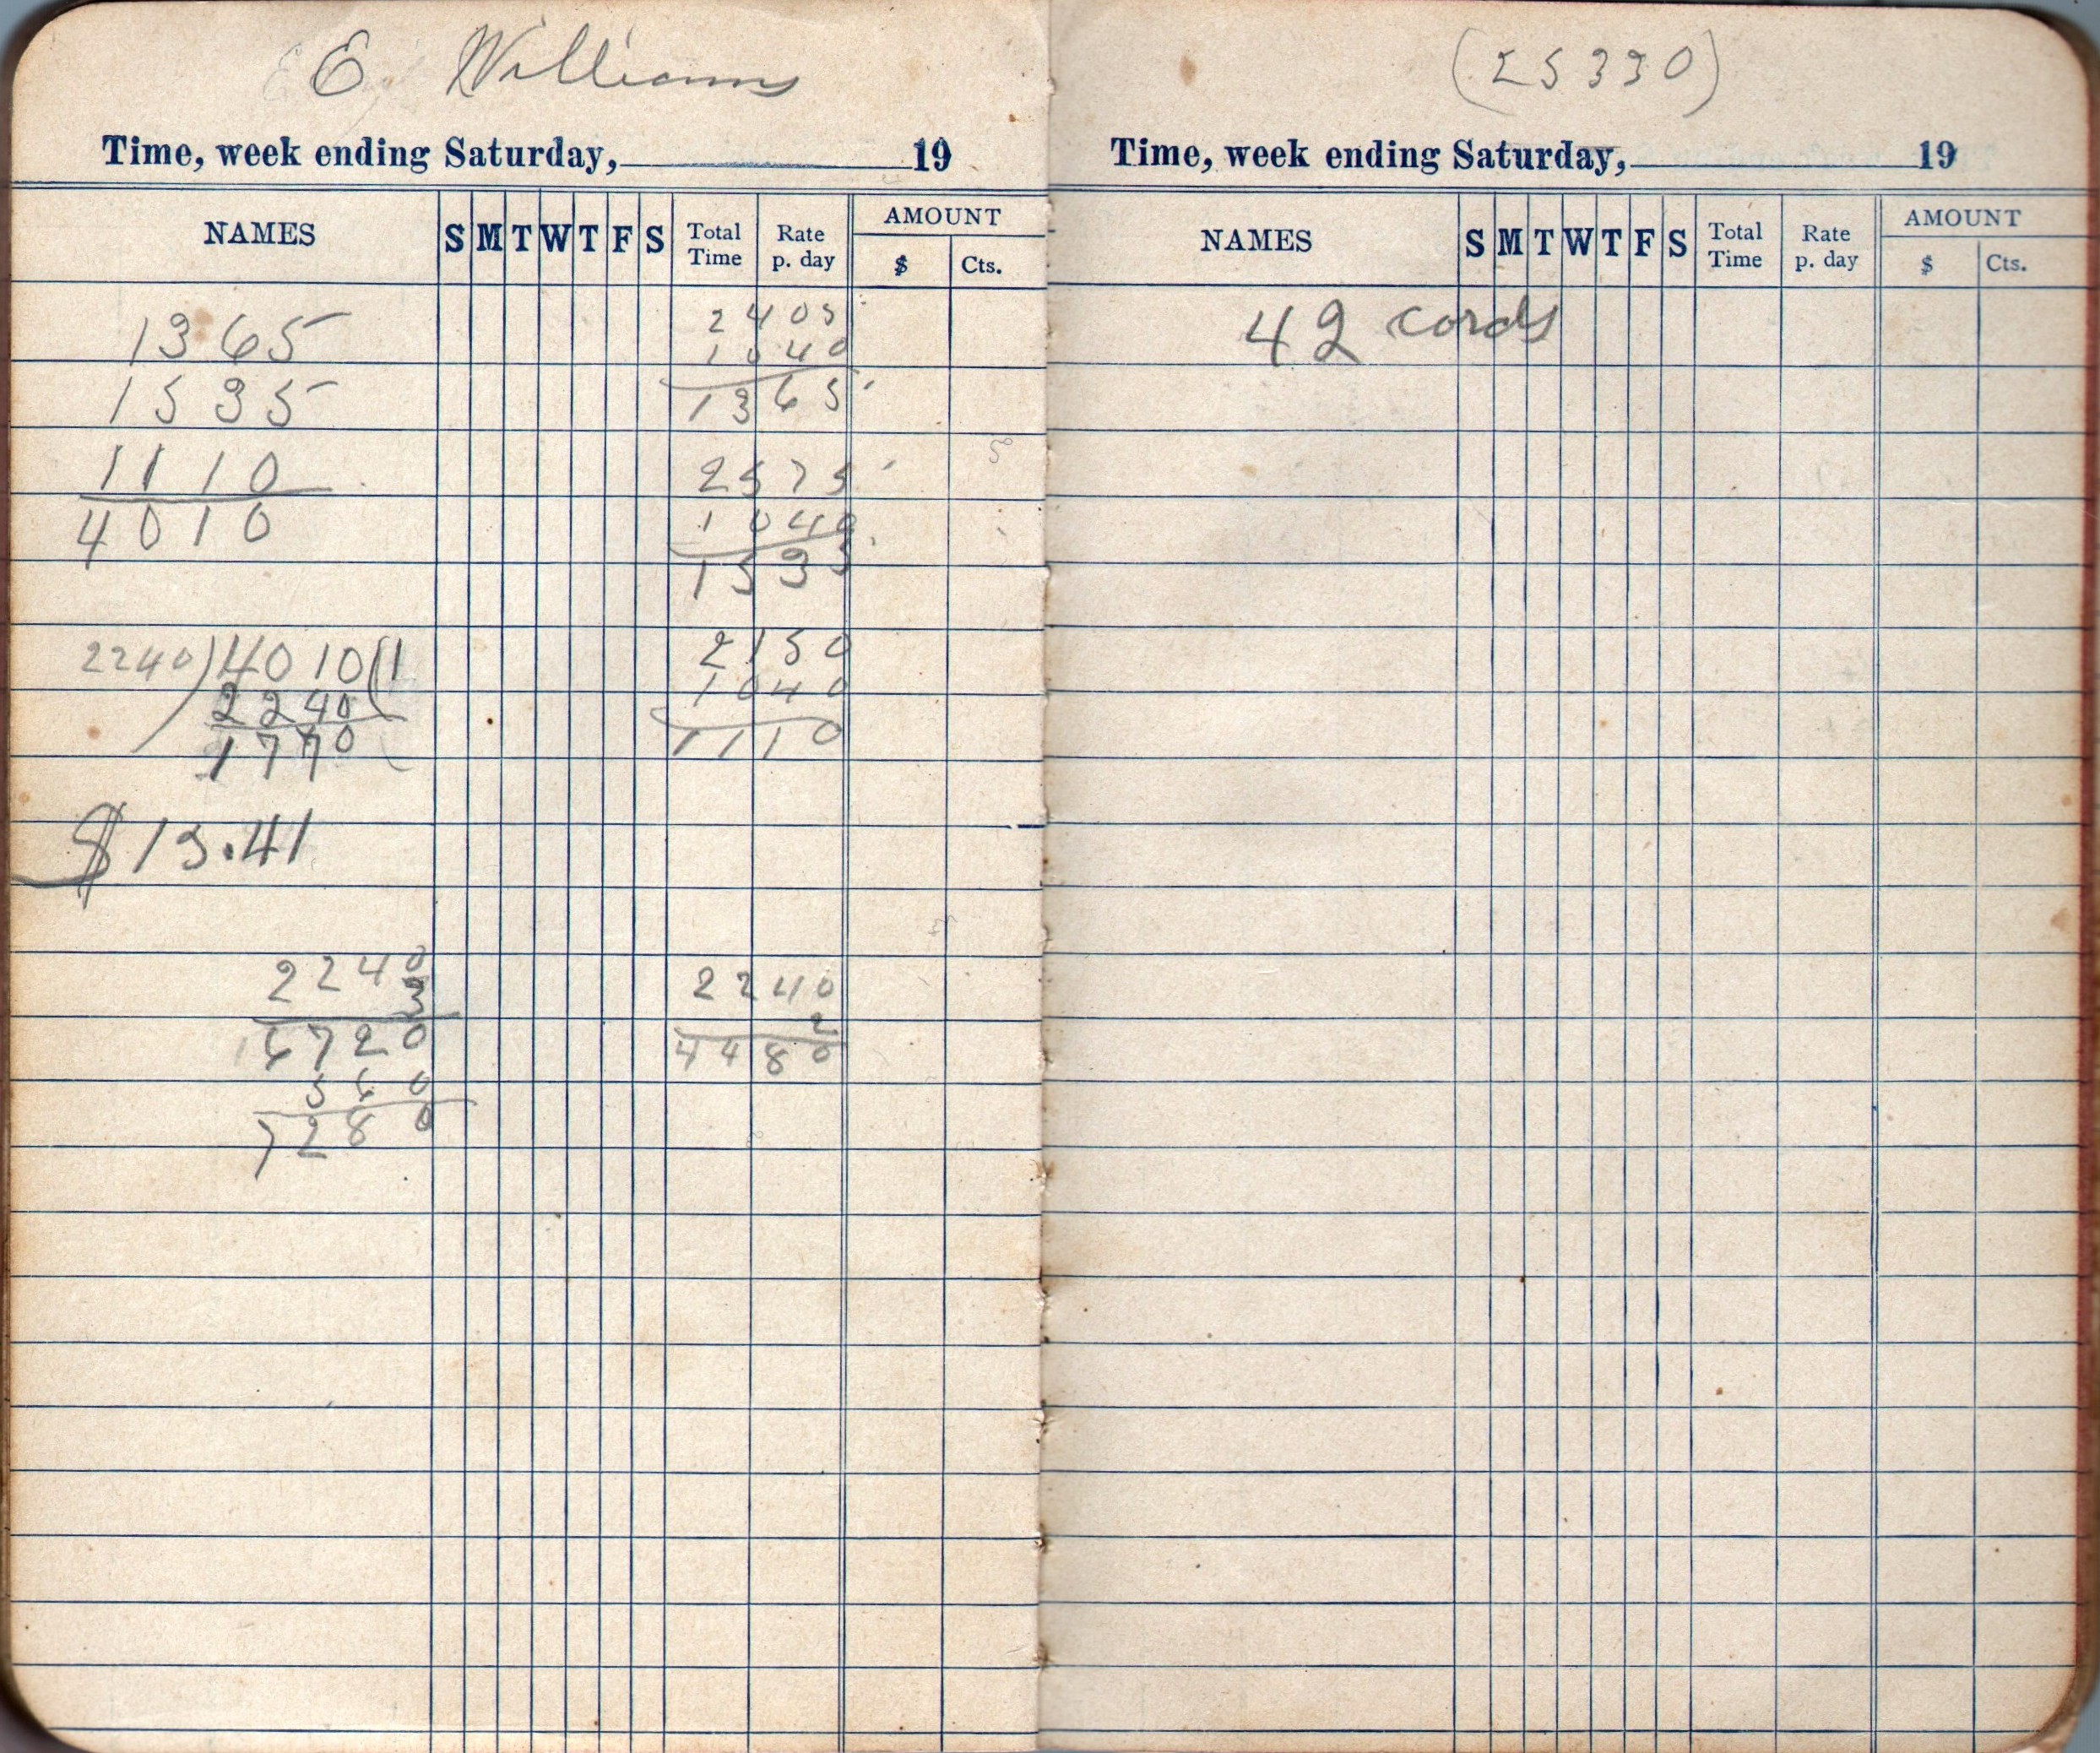 E Williams
Time, week ending Saturday, 19
NAMES S M T W T F S Total Time Rate p. day AMOUNT $ Cts.
1365 2405
1535 1040
1110 1365
4010 2575
1040
1535
2240)4010(1 2150
2240 1040
1770 1110
$13.41
2240 2240
3 2
6720 4480
560
7280
(25330)
Time, week ending Saturday, 19
NAMES S M T W T F S Total Time Rate p. day AMOUNT $ Cts.
42 cords